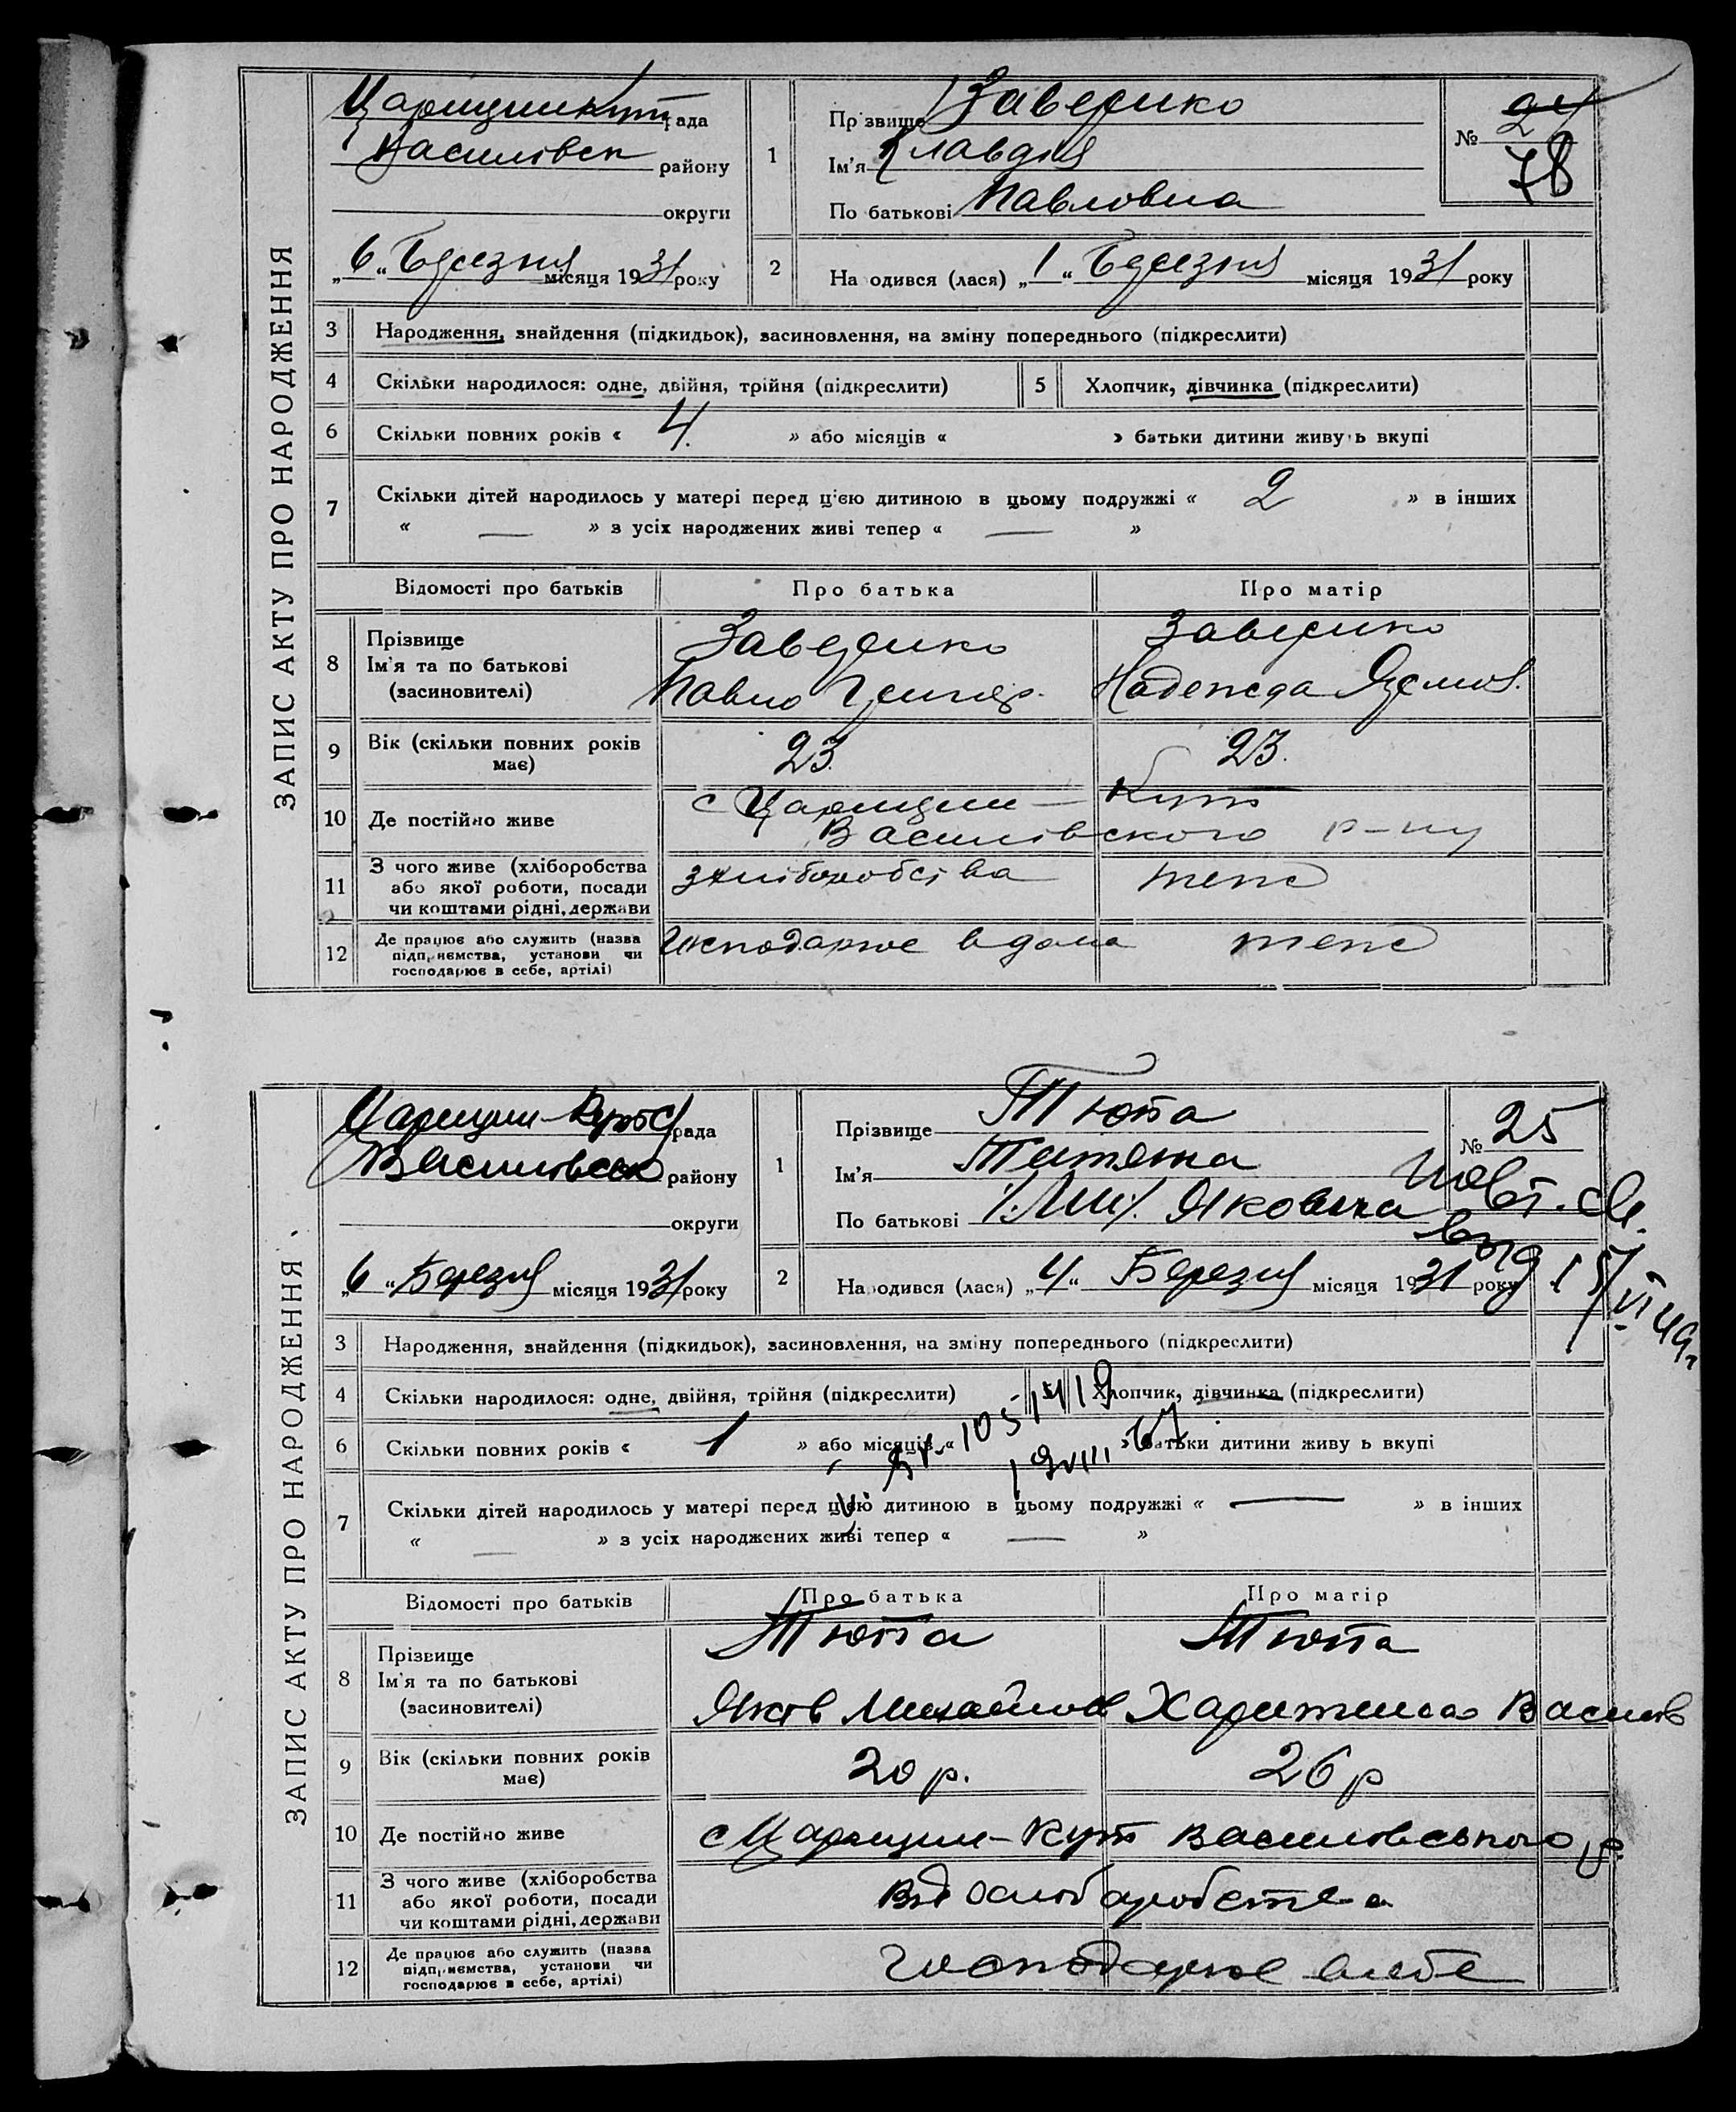 ЗАПИС АКТУ ПРО НАРОДЖЕННЯ
Царицинкут рада
Василівськ району
округи
„6“ Березня місяця 1931 року
1
Прізвище
Ім'я Клавдія
По батькові Павловна
№ 24
78
2
Народився (лася) „1“ Березня місяця 1931 року
3 Народження, знайдення (підкидьок), засиновлення, на зміну попереднього (підкреслити)
4 Скільки народилося: одне, двійня, трійня (підкреслити)
5 Хлопчик, дівчинка (підкреслити)
6 Скільки повних років « 4. » або місяців « » батьки дитини живуть вкупі
7 Скільки дітей народилось у матері перед цією дитиною в цьому подружжі « 2 » в інших
« — » з усіх народжених живі тепер « — »
Відомості про батьків Про батька Про матір
8 Прізвище
Ім'я та по батькові
(засиновителі)
Павло
Надежда
9 Вік (скільки повних років має) 23. 23.
10 Де постійно живе с Царицин – Кут
Василівського р-ну
11 З чого живе (хліборобства
або якої роботи, посади
чи коштами рідні, держави
з хліборобства теж
12 Де працює або служить (назва
підприємства, установи чи
господарює в себе, артілі)
Господарює вдома теж
ЗАПИС АКТУ ПРО НАРОДЖЕННЯ
Царицин-Кутс рада
Василівськ району
округи
„6“ Березня місяця 1931 року
1
Прізвище Тюпа
Ім'я Татяна
По батькові Яковна
№ 25
повт. св.
выд 15/VI 49.
2
Народився (лася) „4“ Березня місяця 1931 року
3 Народження, знайдення (підкидьок), засиновлення, на зміну попереднього (підкреслити)
4 Скільки народилося: одне, двійня, трійня (підкреслити)
5 Хлопчик, дівчинка (підкреслити)
6 Скільки повних років « 1 » або місяців « » батьки дитини живуть вкупі
7 Скільки дітей народилось у матері перед цією дитиною в цьому подружжі « — » в інших
« — » з усіх народжених живі тепер « — »
Відомості про батьків Про батька Про матір
8 Прізвище
Ім'я та по батькові
(засиновителі)
Тюпа Тюпа
Яків Михайлов Харитина Василів
9 Вік (скільки повних років має) 20 р. 26 р
10 Де постійно живе с Царицин-Кут Василівського р.
11 З чого живе (хліборобства
або якої роботи, посади
чи коштами рідні, держави
Від
12 Де працює або служить (назва
підприємства, установи чи
господарює в себе, артілі)
Господарює в себе